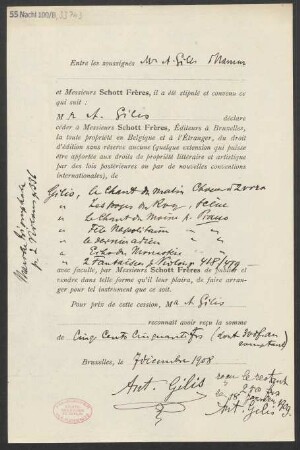 55 Nachl 100/B,
Entre les soussignés Mr A. Gilis Namur
et Messieurs Schott Frères, il a été stipulé et convenu ce
qui suit :
M r A. Gilis déclare
céder à Messieurs Schott Frères, Éditeurs à Bruxelles,
la toute propriété en Belgique et à l'Étranger, du droit
d'édition sans réserve aucune (quelque extension qui puisse
être apportée aux droits de propriété littéraire et artistique
par des lois postérieures ou par de nouvelles conventions
internationales), de
Gilis, le Chant du matin
" Les Noces du Roy, Scène
" Le Chant du
" Fête Napolitaine " "
" le dernier adieu " "
" Echo du " "
" 2 Fantaisies p. Violons 418/479
avec faculté, par Messieurs Schott Frères de publier et
vendre dans telle forme qu'il leur plaira, de faire arranger
pour tel instrument que ce soit.
Pour prix de cette cession, M r A Gilis
reconnaît avoir reçu la somme
de Cinq Cents Cinquante frs (dont 300 fr au
comptant)
Bruxelles, le 7 décembre 1908
Ant. Gilis
reçu le restant
250 frs
le 18 1909
Ant. Gilis
p. 2 Violons 336